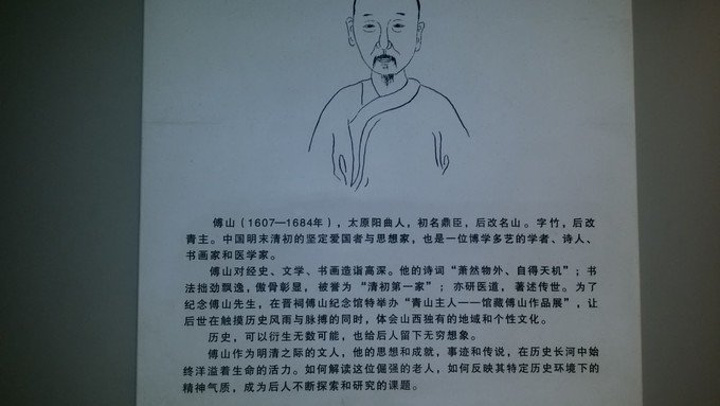 傅山（1607—1684年），太原阳曲人，初名鼎臣，后改名山。字竹，后改
青主。中国明末清初的坚定爱国者与思想家，也是一位博学多艺的学者、诗人、
书画家和医学家。
傅山对经史、文学、书画造诣高深。他的诗词“萧然物外、自得天机”；书
法拙劲飘逸，傲骨彰显，被誉为“清初第一家”；亦研医道，著述传世。为了
纪念傅山先生，在晋祠傅山纪念馆特举办“青山主人——馆藏傅山作品展”，让
后世在触摸历史风雨与脉搏的同时，体会山西独有的地域和个性文化。
历史，可以衍生无数可能，也给后人留下无穷想象。
傅山作为明清之际的文人，他的思想和成就，事迹和传说，在历史长河中始
终洋溢着生命的活力。如何解读这位倔强的老人，如何反映其特定历史环境下的
精神气质，成为后人不断探索和研究的课题。